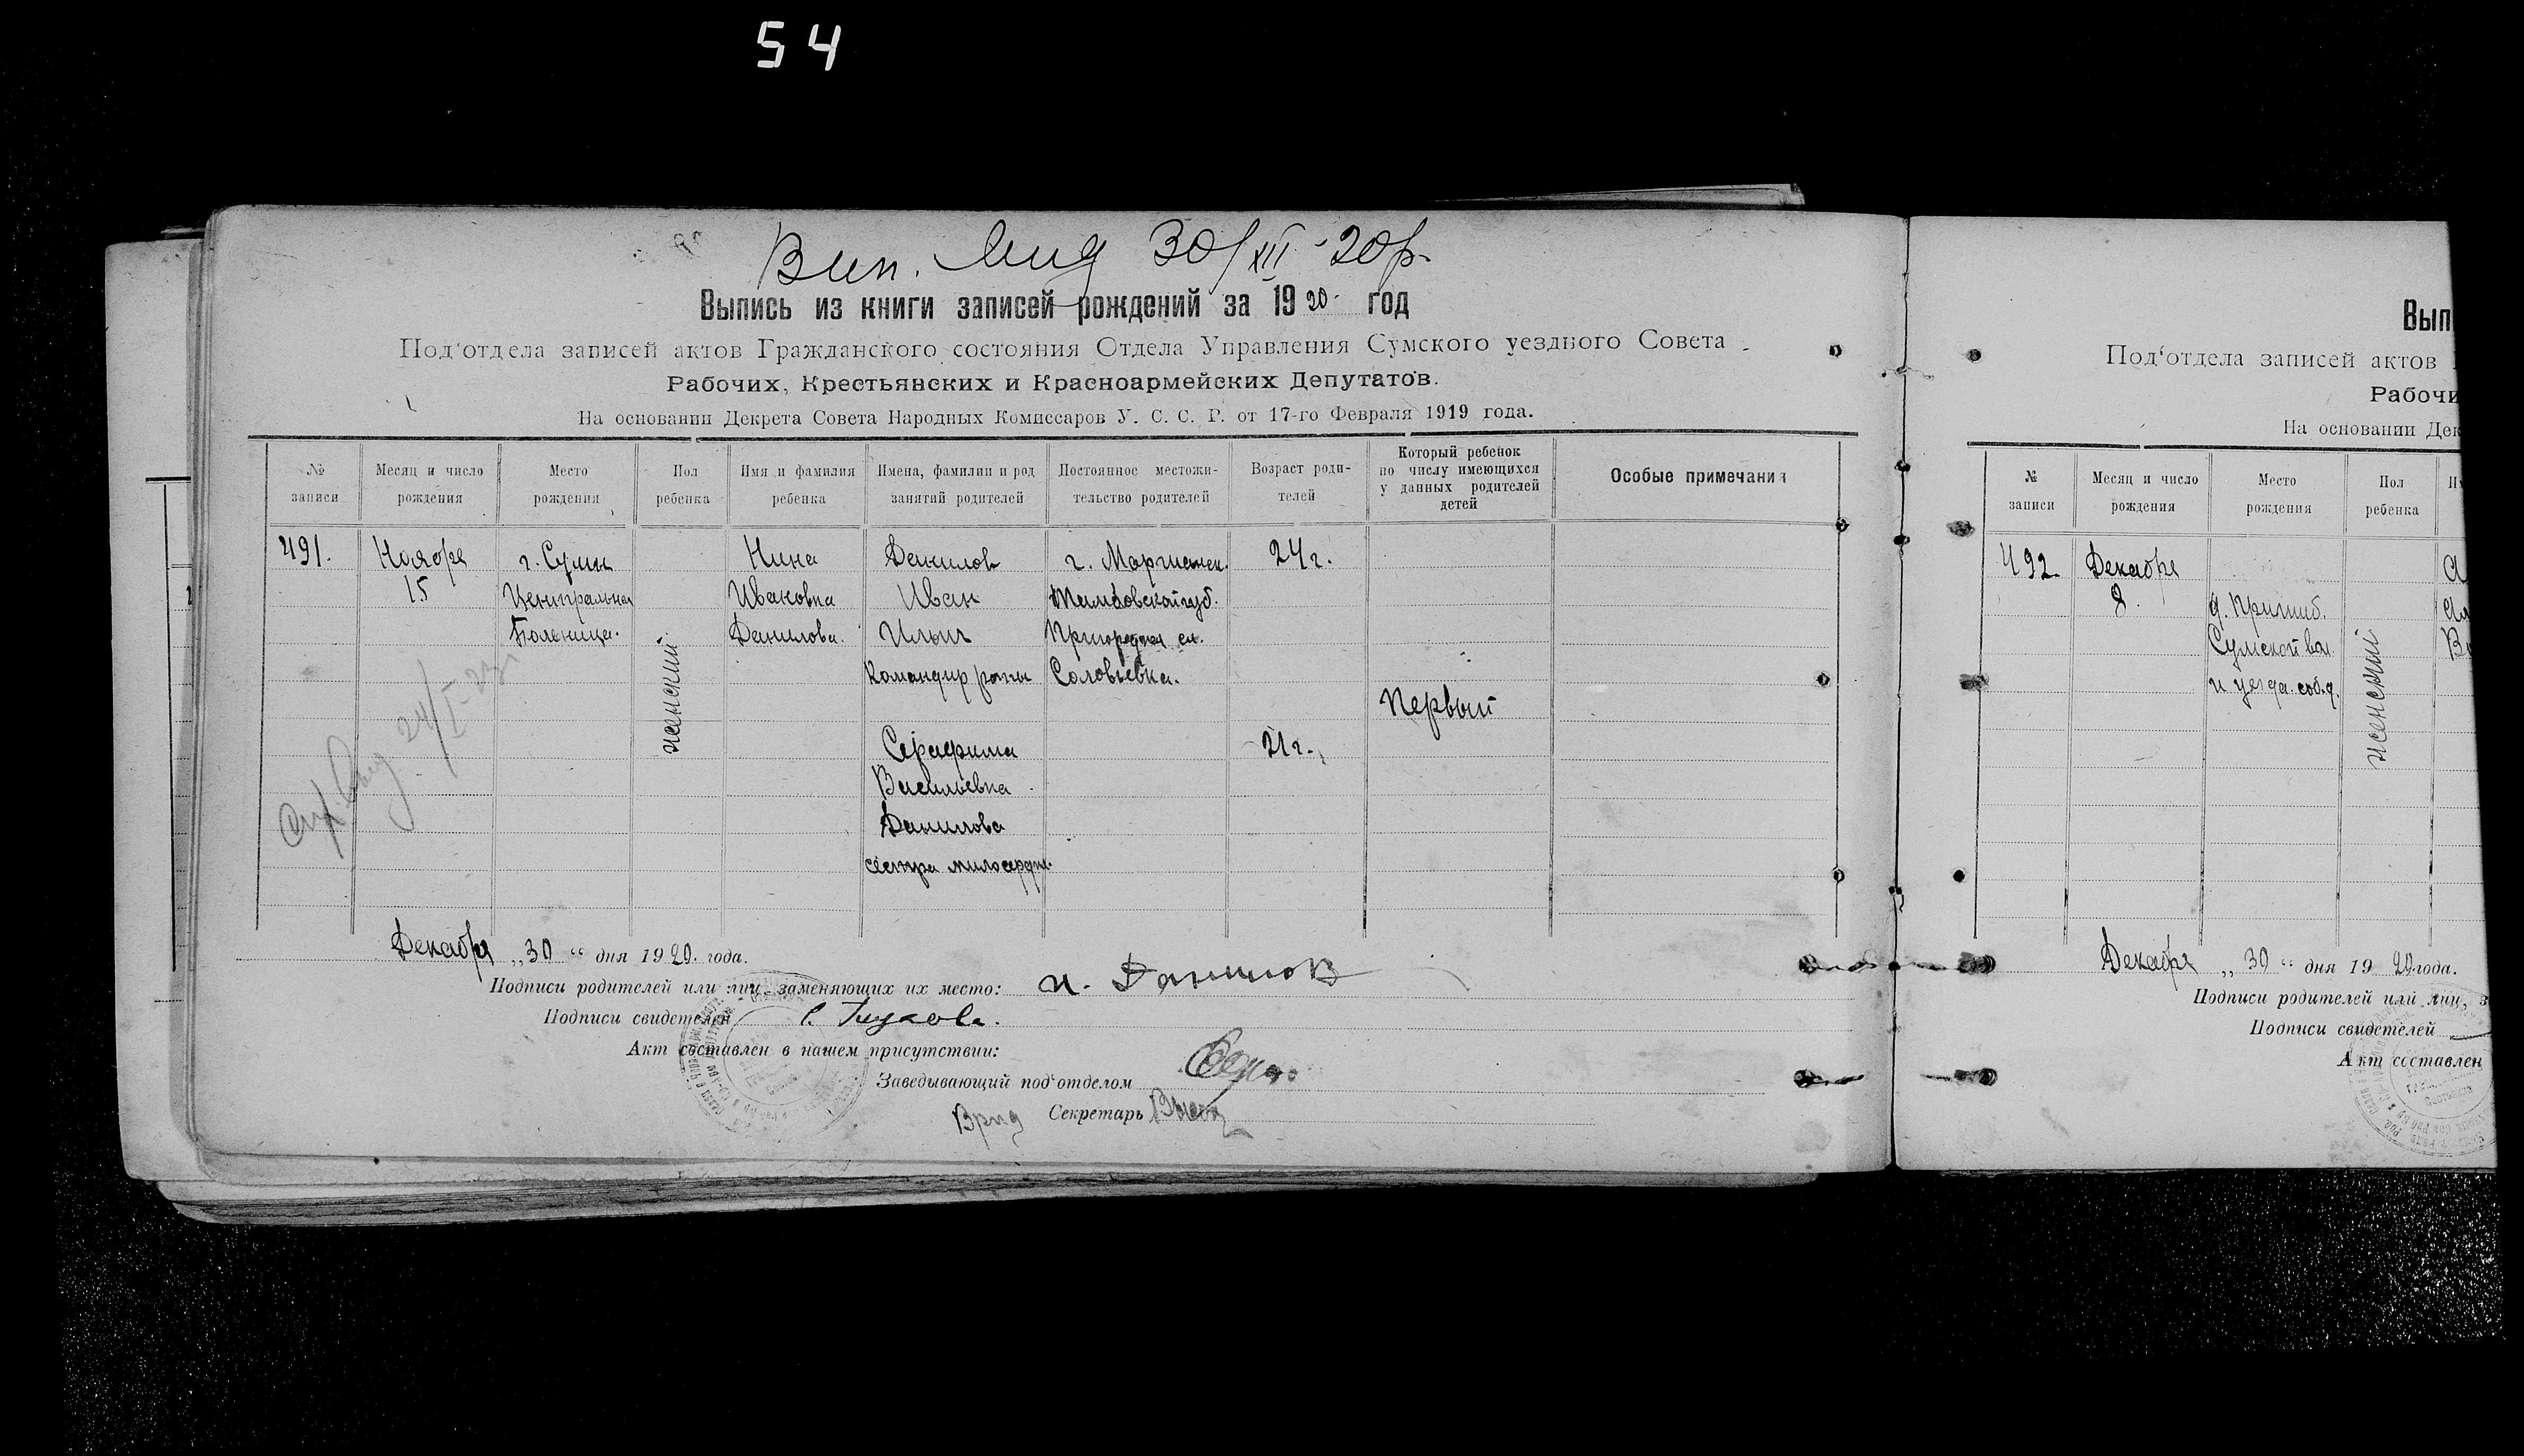 54
Вип. 30/XII-20р.
Выпись из книги записей рождений за 1920 год
Под'отдела записей актов Гражданского состояния Отдела Управления Сумского уездного Совета
Рабочих, Крестьянских и Красноармейских Депутатов.
На основании Декрета Совета Народных Комиссаров У. С. С. Р. от 17-го Февраля 1919 года.
№ записи
Месяц и число рождения
Место рождения
Пол ребенка
Имя и фамилия ребенка
Имена, фамилии и род занятий родителей
Постоянное местожительство родителей
Возраст родителей
Который ребенок по числу имеющихся у данных родителей детей
Особые примечания
491.
Ноября
15
г. Сумы
Центральная
Больница.
женский
Нина
Ивановна
Данилова.
Данилов
Иван
Ильич
Командир роты
Серафима
Васильевна
Данилова
сестра милосерди.
г. Моршанск.
Тамбовской губ.
Пригородная сл.
Соловьевка.
24 г.
21 г.
Первый
24/I
Декабря „30“ дня 1920. года.
Подписи родителей или лиц, заменяющих их место: И. Данилов
Подписи свидетелей
Акт составлен в нашем присутствии:
Заведывающий под'отделом
Врид Секретарь
Вып
Под'отдела записей актов
Рабочи
На основании Дек
№ записи
Месяц и число рождения
Место рождения
Пол ребенка
492.
Декабря
8.
д.
Сумской вол.
и уезда
женский
Декабря „30“ дня 1920 года.
Подписи родителей или лиц, з
Подписи свидетелей
Акт составлен